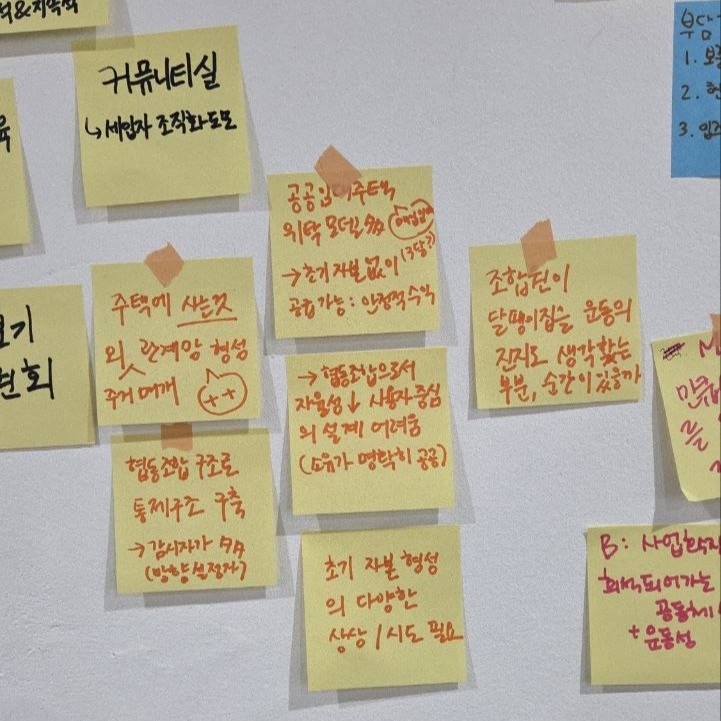 커뮤니티실
↳ 세입자 조직화 도모
부담
1. 보
2. 현
3. 입
공공임대주택
위탁 모델로 多
→ 초기 자본 없이
공급 가능 : 안정적 수익
주택에 사는 것
외 관계망 형성
주거 매개
++
조합원이
달팽이집을 운동의
진지로 생각할는
부분, 순간이 있을까
→ 협동조합으로서
자율성↓ 사용자 중심
의 설계 어려움
(소유가 명확히 공공)
협동조합 구조로
통제구조 구축
→ 감시자가 多多
(방향 설정자)
초기 자본 형성
의 다양한
상상 / 시도 필요
B : 사업화
희석되어가는
공동체
+ 운동성